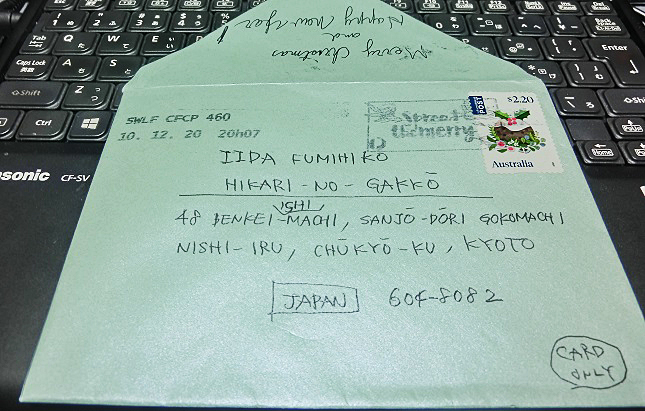 Merry Christmas
and
Happy New Year!
SWLF CFCP 460
10. 12. 20 20h07
Spread
the merry
POST
$2.20
Australia
IIDA FUMIHIKO
HIKARI-NO-GAKKŌ
ISHI
48 BENKEI-MACHI, SANJŌ-DŌRI GOKOMACHI
NISHI-IRU, CHŪKYŌ-KU, KYOTO
JAPAN 604-8082
CARD
ONLY
Panasonic CF-SV
Tab
Caps Lock
英数
Shift
Ctrl
Enter
Shift
Home